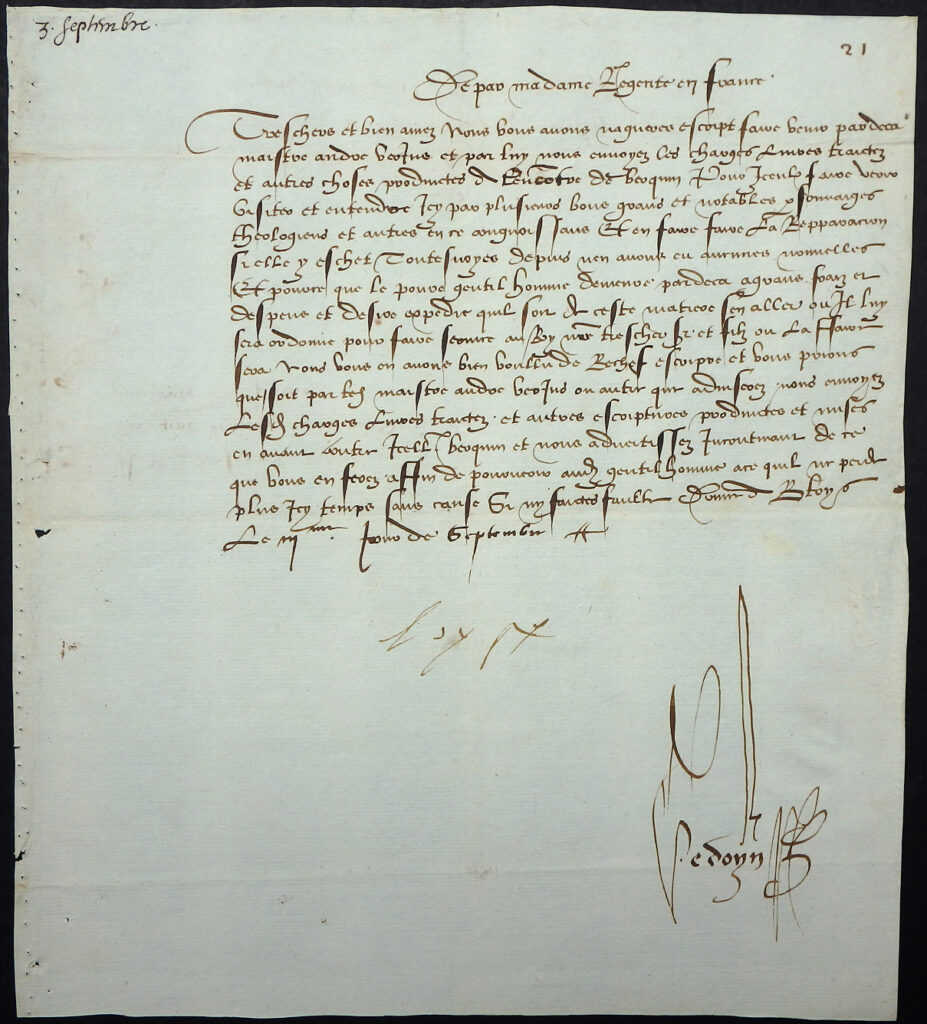 3. Septembre.
21
De par madame Regente en france
Treschers et bien amez Nous vous auons nagueres escript faire venir pardeca
maistre andre verJus et par luy nous enuoyez les charges Liures traictez
et autres choses produictes a Lencotre de berquin Pour Iceulx faire veoir
visiter et entendre Icy par plusieurs bons grans et notables psonnaiges
theologiens et autres en ce congnoissans Et en faire faire La Repparacion
si elle y eschet Toutesuoyes depuis nen auons eu aucunes nouuelles
Et pource que le poure gentil homme demeure pardeca a grans fraiz et
despens et desire expedie quil soit de ceste matiere sen aller ou Il luy
sera ordonne pour faire seruice au Roy nre trescher sr et filz ou La ffaire
sera Nous vous en auons bien voullu de Rechef escripre et vous prions
que soit par led maistre andre verJus ou autre que aduiserez nous enuoyez
Lesd charges Liures traictez et autres escriptures produictes et mises
en auant contre Icell berquin et nous aduertissez Incontinant de ce
que vous en ferez affin de pouruoir aud gentil homme a ce quil ne perde
plus Icy temps sans cause Si ny faictes faulte Donne a Bloys
Le iij me Jour de Septembre
Loyse
Gedoyn